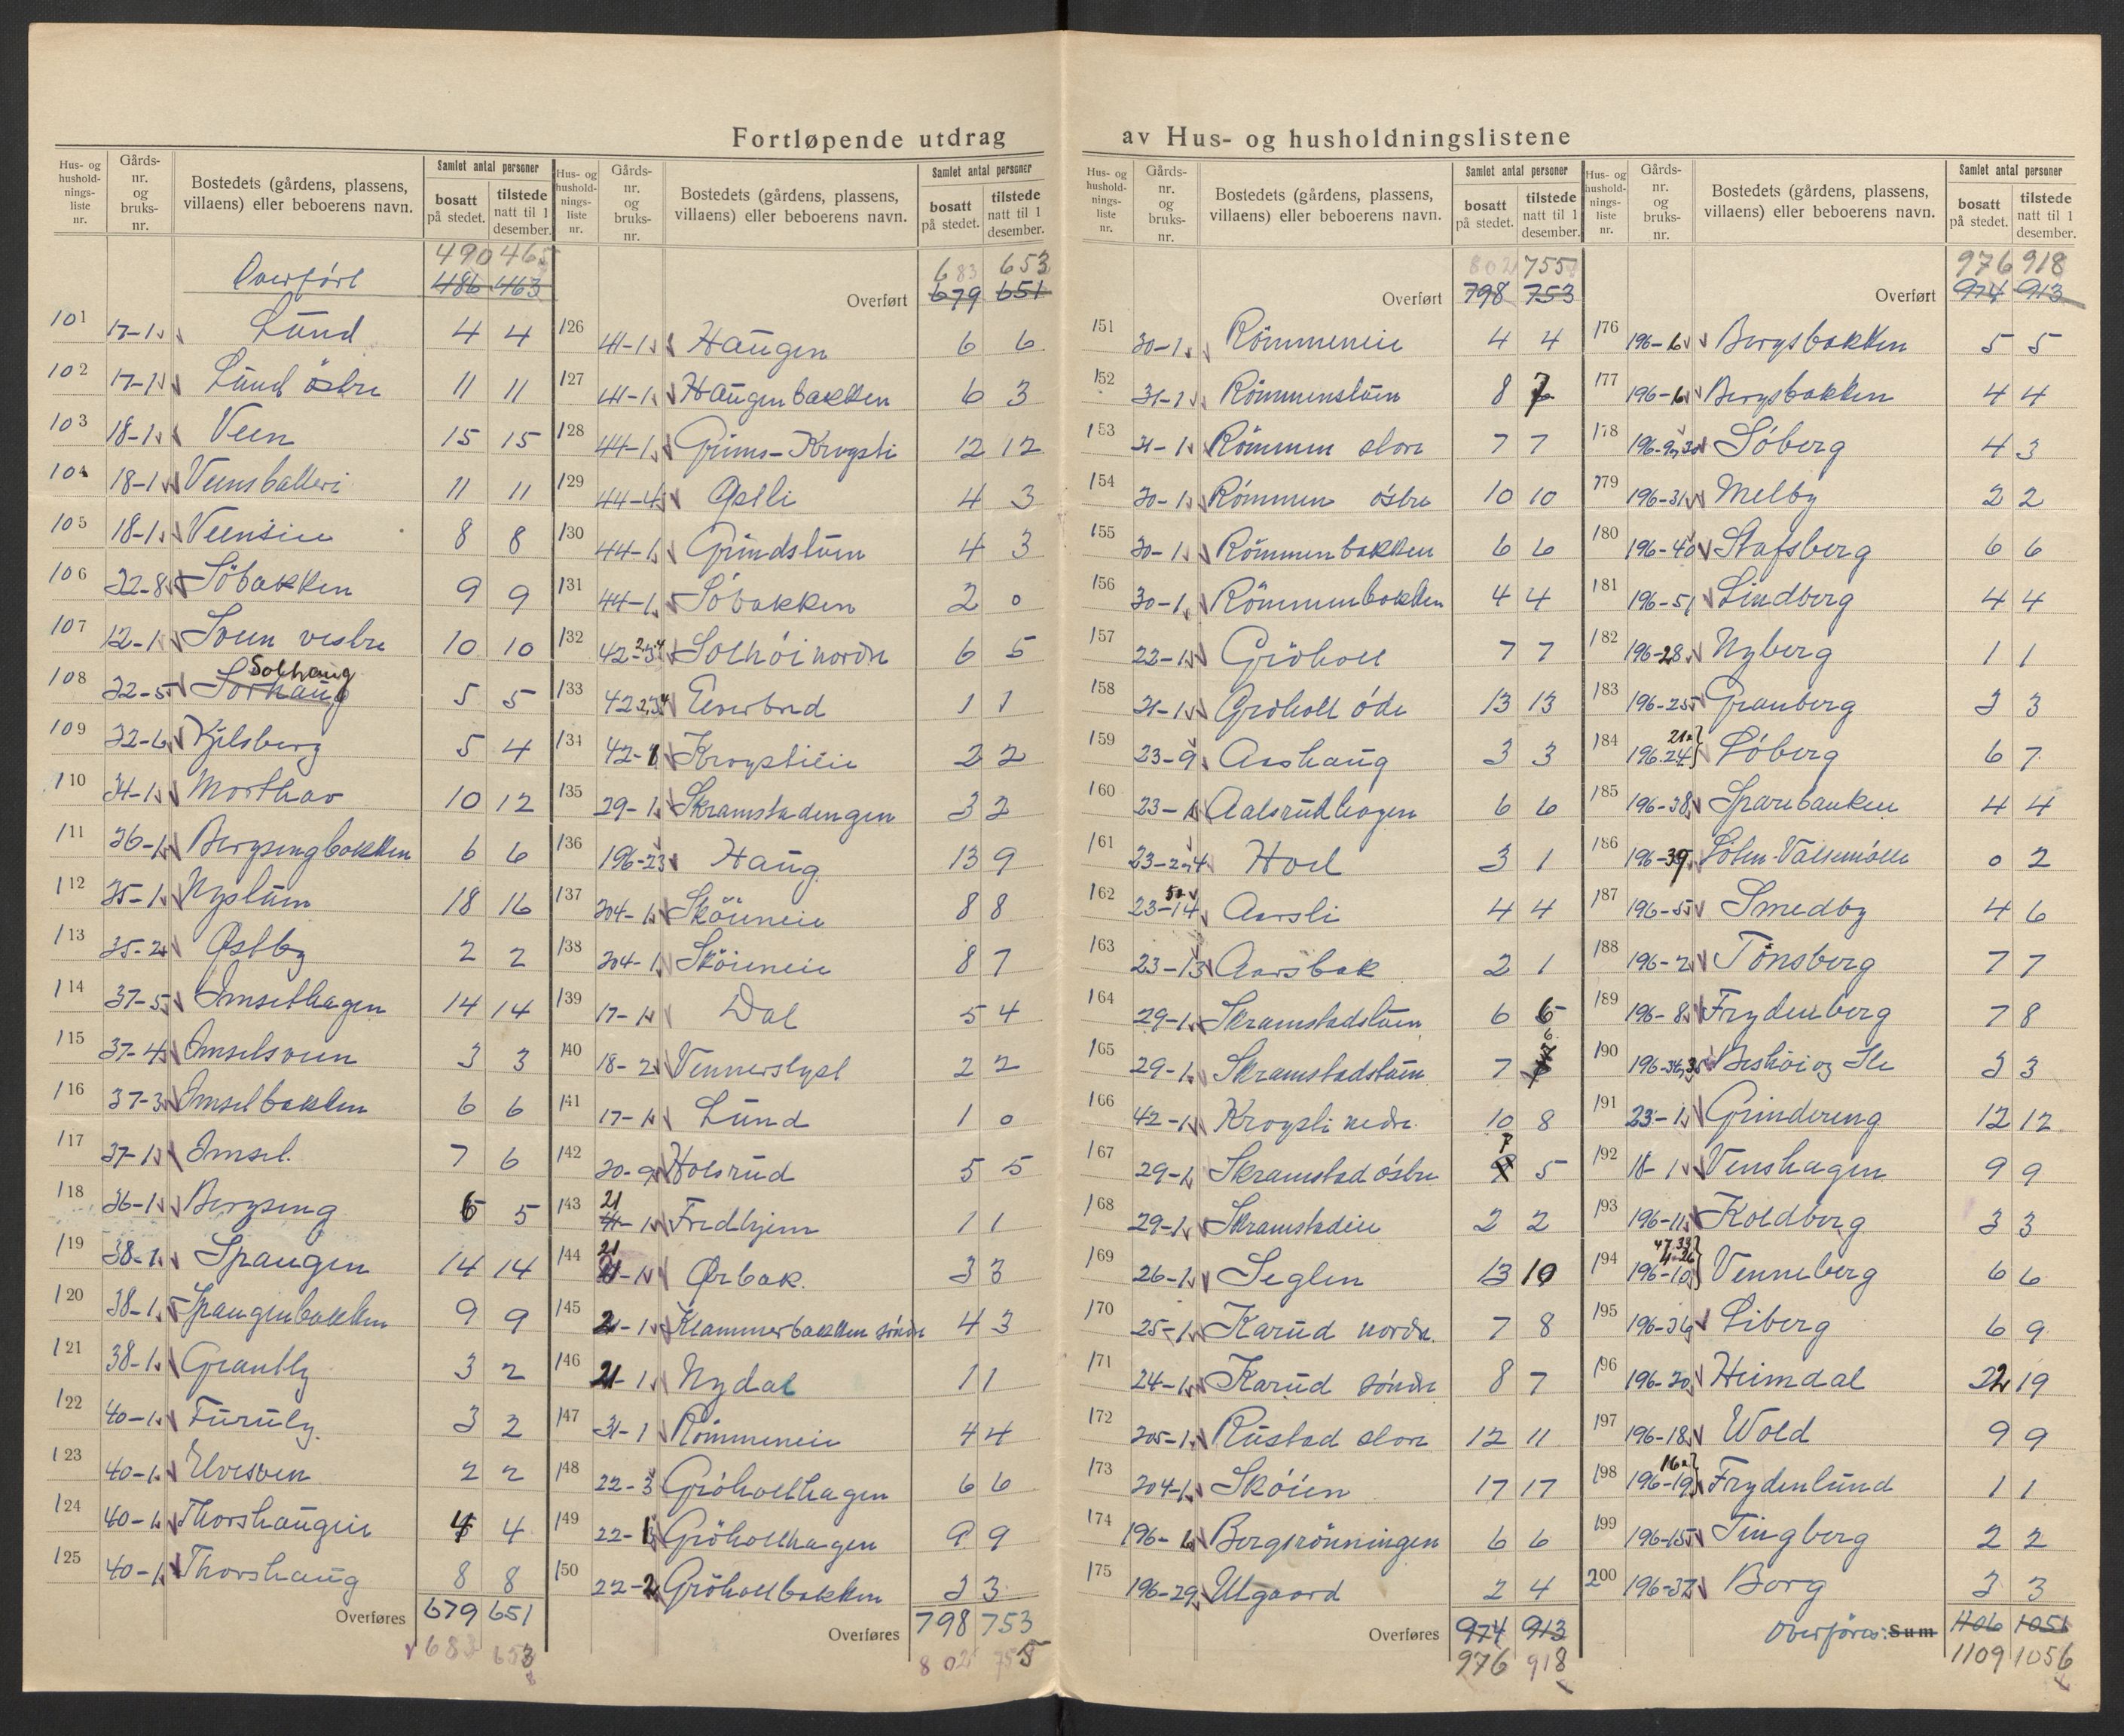 Fortløpende utdrag av Hus- og husholdningslistene
Hus- og hushold-nings-liste nr. Gårds-nr. og bruks-nr. Bostedets (gårdens, plassens, villaens) eller beboerens navn. Samlet antal personer bosatt på stedet. tilstede natt til 1 desember.
490 465
Overført 486 463
101 17-1 Lund 4 4
102 17-1 Lund östre 11 11
103 18-1 Veen 15 15
104 18-1 Veensbakken 11 11
105 18-1 Veenseie 8 8
106 32-8 Söbakken 9 9
107 12-1 Loen vestre 10 10
108 32-5 Sorhaug Solhaug 5 5
109 32-6 Kjelsberg 5 4
110 34-1 Morthav 10 12
111 36-1 Bergsengbakken 6 6
112 35-1 Nystuen 18 16
113 35-2 Østby 2 2
114 37-5 Imsethagen 14 14
115 37-4 Imsetsveen 3 3
116 37-3 Imsetbakken 6 6
117 37-1 Imset. 7 6
118 36-1 Bergseng 6 5
119 38-1 Spangen 14 14
120 38-1 Spangenbakken 9 9
121 38-1 Granlly 3 2
122 40-1 Furuly. 3 2
123 40-1 Elvesven 2 2
124 40-1 Thorshaugeie 4 4
125 40-1 Thorshaug 8 8
Overføres 679 651
683 653
Hus- og hushold-nings-liste nr. Gårds-nr. og bruks-nr. Bostedets (gårdens, plassens, villaens) eller beboerens navn. Samlet antal personer bosatt på stedet. tilstede natt til 1 desember.
683 653
Overført 679 651
126 41-1 Haugen 6 6
127 41-1 Haugenbakken 6 3
128 44-1 Grims-Krogsti 12 12
129 44-4 Østli 4 3
130 44-1 Grindstuen 4 3
131 44-1 Sobakken 2 0
132 42-2,3,4 Solhöi nordre 6 5
133 42 2,3,4 Everbred 1 1
134 42-1 Krogstieie 2 2
135 29-1 Skramstadengen 3 2
136 196-23 Haug 13 9
137 204-1 Sköieneie 8 8
138 204-1 Sköieneie 8 7
139 17-1 Dal 5 4
140 18-2 Vennerslyst 2 2
141 17-1 Lund 1 0
142 20-9 Holsrud 5 5
143 21-1 Fredhjem 1 1
144 21-1 Ørbak. 3 3
145 21-1 Klammerbakken søndre 4 3
146 21-1 Nydal 1 1
147 31-1 Römmeneie 4 4
148 22-3 Gröholthagen 6 6
149 22-1 Gröholthagen 9 9
150 22-2 Gröholtbakken 3 3
Overføres 798 753
802 755
Hus- og hushold-nings-liste nr. Gårds-nr. og bruks-nr. Bostedets (gårdens, plassens, villaens) eller beboerens navn. Samlet antal personer bosatt på stedet. tilstede natt til 1 desember.
802 755
Overført 798 753
151 30-1 Römmeneie 4 4
152 31-1 Römmenstuen 8 7
153 31-1 Römmen store 7 7
154 30-1 Römmen östre 10 10
155 30-1 Römmenbakken 6 6
156 30-1 Römmenbakken 4 4
157 22-1 Gröholt 7 7
158 21-1 Gröholt öde 13 13
159 23-9 Aashaug 3 3
160 23-1 Aalsrudhagen 6 6
161 23-2,4 Hoel 3 1
162 23-14 Aarsli 4 4
163 23-13 Aarsbak 2 1
164 29-1 Skramstadstuen 6 6
165 29-1 Skramstadstuen 7 6
166 42-1 Krogsti nedre. 10 8
167 29-1 Skramstad östre 7 5
168 29-1 Skramstadeie 2 2
169 26-1 Seglen 13 10
170 25-1 Karud nordre. 7 8
171 24-1 Karud søndre 8 7
172 205-1 Rustad store 12 11
173 204-1 Sköien 17 17
174 196-6 Bergsrönningen 6 6
175 196-29 Utgaard 2 4
Overføres 974 913
976 918
Hus- og hushold-nings-liste nr. Gårds-nr. og bruks-nr. Bostedets (gårdens, plassens, villaens) eller beboerens navn. Samlet antal personer bosatt på stedet. tilstede natt til 1 desember.
976 918
Overført 974 913
176 196-6 Bergsbakken 5 5
177 196-6 Bergsbakken 4 4
178 196-9,30 Söberg 4 3
179 196-31 Melby 2 2
180 196-40 Stafsberg 6 6
181 196-51 Lindberg 4 4
182 196-28 Nyberg 1 1
183 196-25 Granberg 3 3
184 196.24 21 Löberg 6 7
185 196-38 Sparebanken 4 4
186 196-39 Löten Valsemölle 0 2
187 196-55 Smedby 4 6
188 196-2 Tönsberg 7 7
189 196-8 Frydenberg 7 8
190 196-34,35 Besköi og Sle 3 3
191 23-1 Grindereng 12 12
192 18-1 Venshagen 9 9
193 196-11 Koldberg 3 3
194 196-10 Venneberg 6 6
195 196-36 Liberg 6 9
196 196-20 Heimdal 22 19
197 196-18 Wold 9 9
198 196-19 16 Frydenlund 1 1
199 196-15 Tingberg 2 2
200 196-37 Borg 3 3
Overföres: Sum 1106 1051
1109 1056